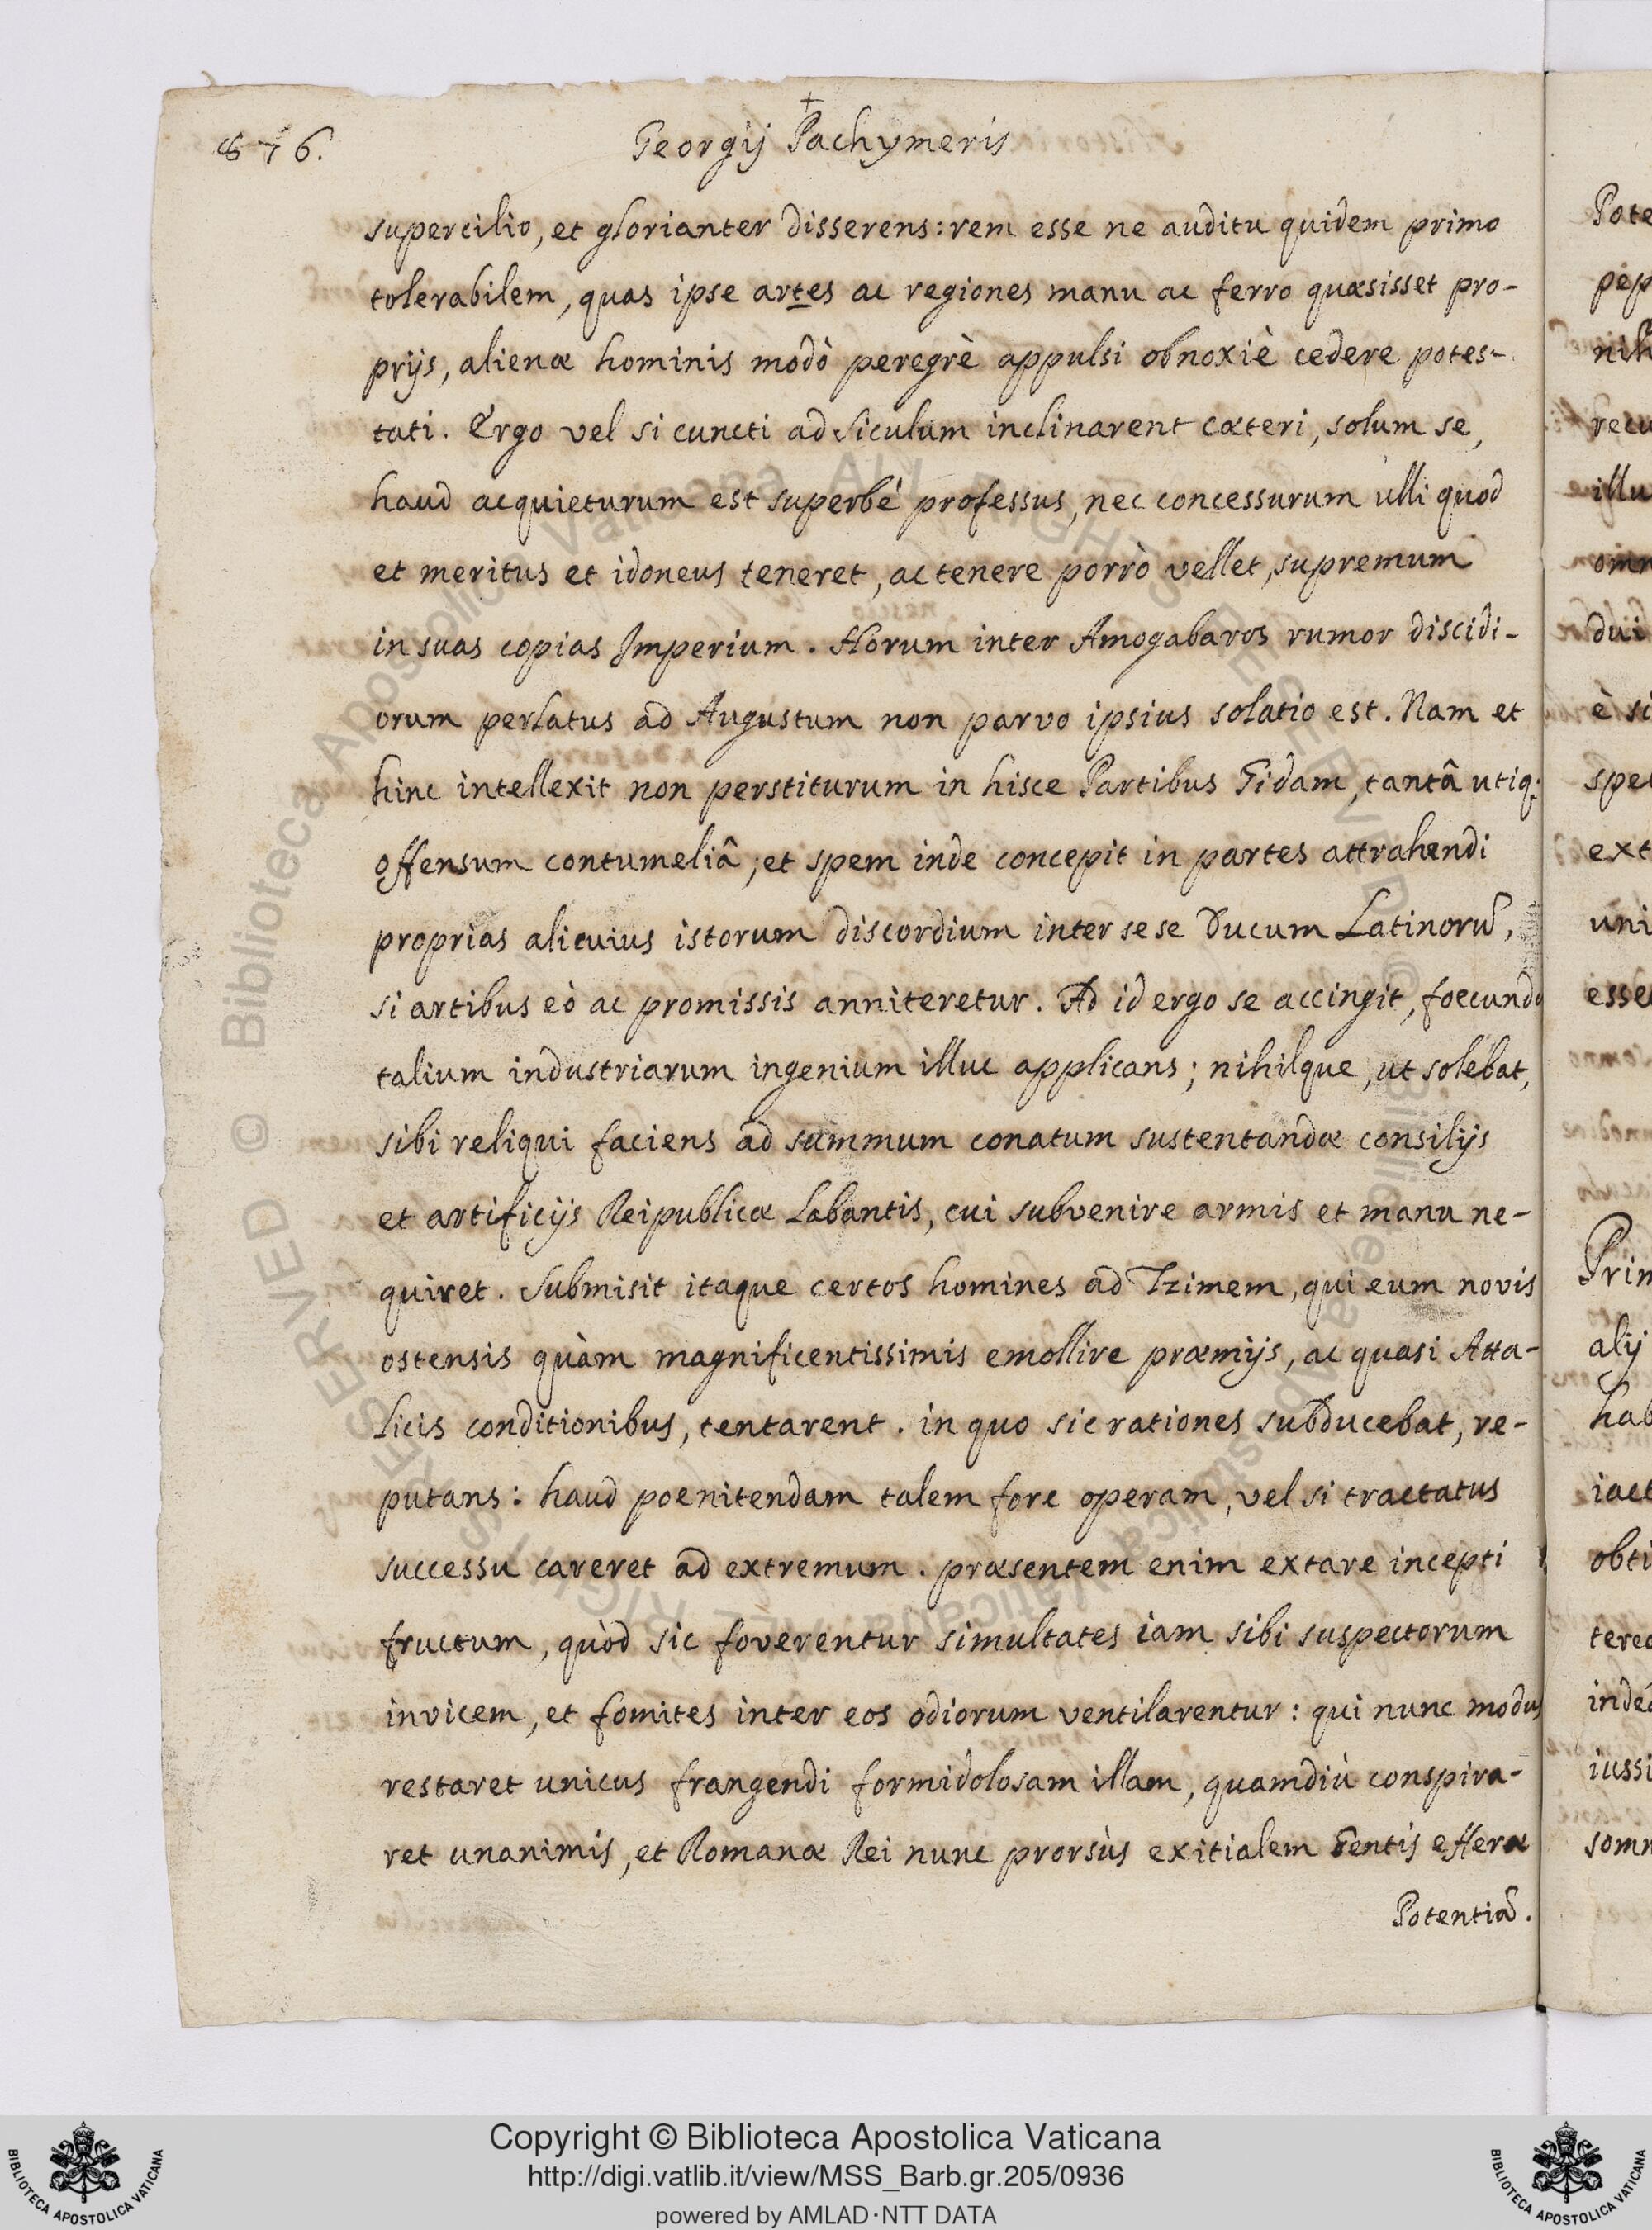 876.
Georgij Pachymeris
supercilio, et glorianter disserens: rem esse ne auditu quidem primo
tolerabilem, quas ipse artes ac regiones manu ac ferro quæsisset pro-
prijs, alienæ hominis modò peregrè appulsi obnoxiè cedere potes-
tati. Ergo vel si cuncti ad Siculum inclinarent cæteri, solum se,
haud acquieturum est superbé professus, nec concessurum ulli quod
et meritus et idoneus teneret, ac tenere porrò vellet, supremum
in suas copias Imperium. Horum inter Amogabaros rumor discidi-
orum perlatus ad Augustum non parvo ipsius solatio est. Nam et
hinc intellexit non perstiturum in hisce Partibus Gidam, tantâ utiq;
offensum contumeliâ; et spem inde concepit in partes attrahendi
proprias alicuius istorum discordium inter sese Ducum Latinorũ,
si artibus eò ac promissis anniteretur. Ad id ergo se accingit, foecundo
talium industriarum ingenium illuc applicans; nihilque, ut solebat,
sibi reliqui faciens ad summum conatum sustentandæ consilijs
et artificijs Reipublicæ Labantis, cui subvenire armis et manu ne-
quiret. Submisit itaque certos homines ad Tzimem, qui eum novis
ostensis quàm magnificentissimis emollire præmijs, ac quasi Atta-
licis conditionibus, tentarent. in quo sic rationes subducebat, re-
putans: haud poenitendam talem fore operam, vel si tractatus
successu careret ad extremum. præsentem enim extare incepti
fructum, quòd sic foverentur simultates iam sibi suspectorum
invicem, et fomites inter eos odiorum ventilarentur: qui nunc modus
restaret unicus frangendi formidolosam illam, quamdiù conspira-
ret unanimis, et Romanæ Rei nunc prorsùs exitialem Gentis efferæ
Potentiã.
Pote
pep
nih
recu
illu
omn
dui
è si
spe
ext
uni
esse
Prin
alij
hab
iact
obti
tere
inde
iussi
somn
© Biblioteca Apostolica Vaticana ALL RIGHTS RESERVED © Biblioteca Apostolica Vaticana ALL RIGHTS RESERVED
Copyright © Biblioteca Apostolica Vaticana
http://digi.vatlib.it/view/MSS_Barb.gr.205/0936
powered by AMLAD·NTT DATA
BIBLIOTECA APOSTOLICA VATICANA
BIBLIOTECA APOSTOLICA VATICANA